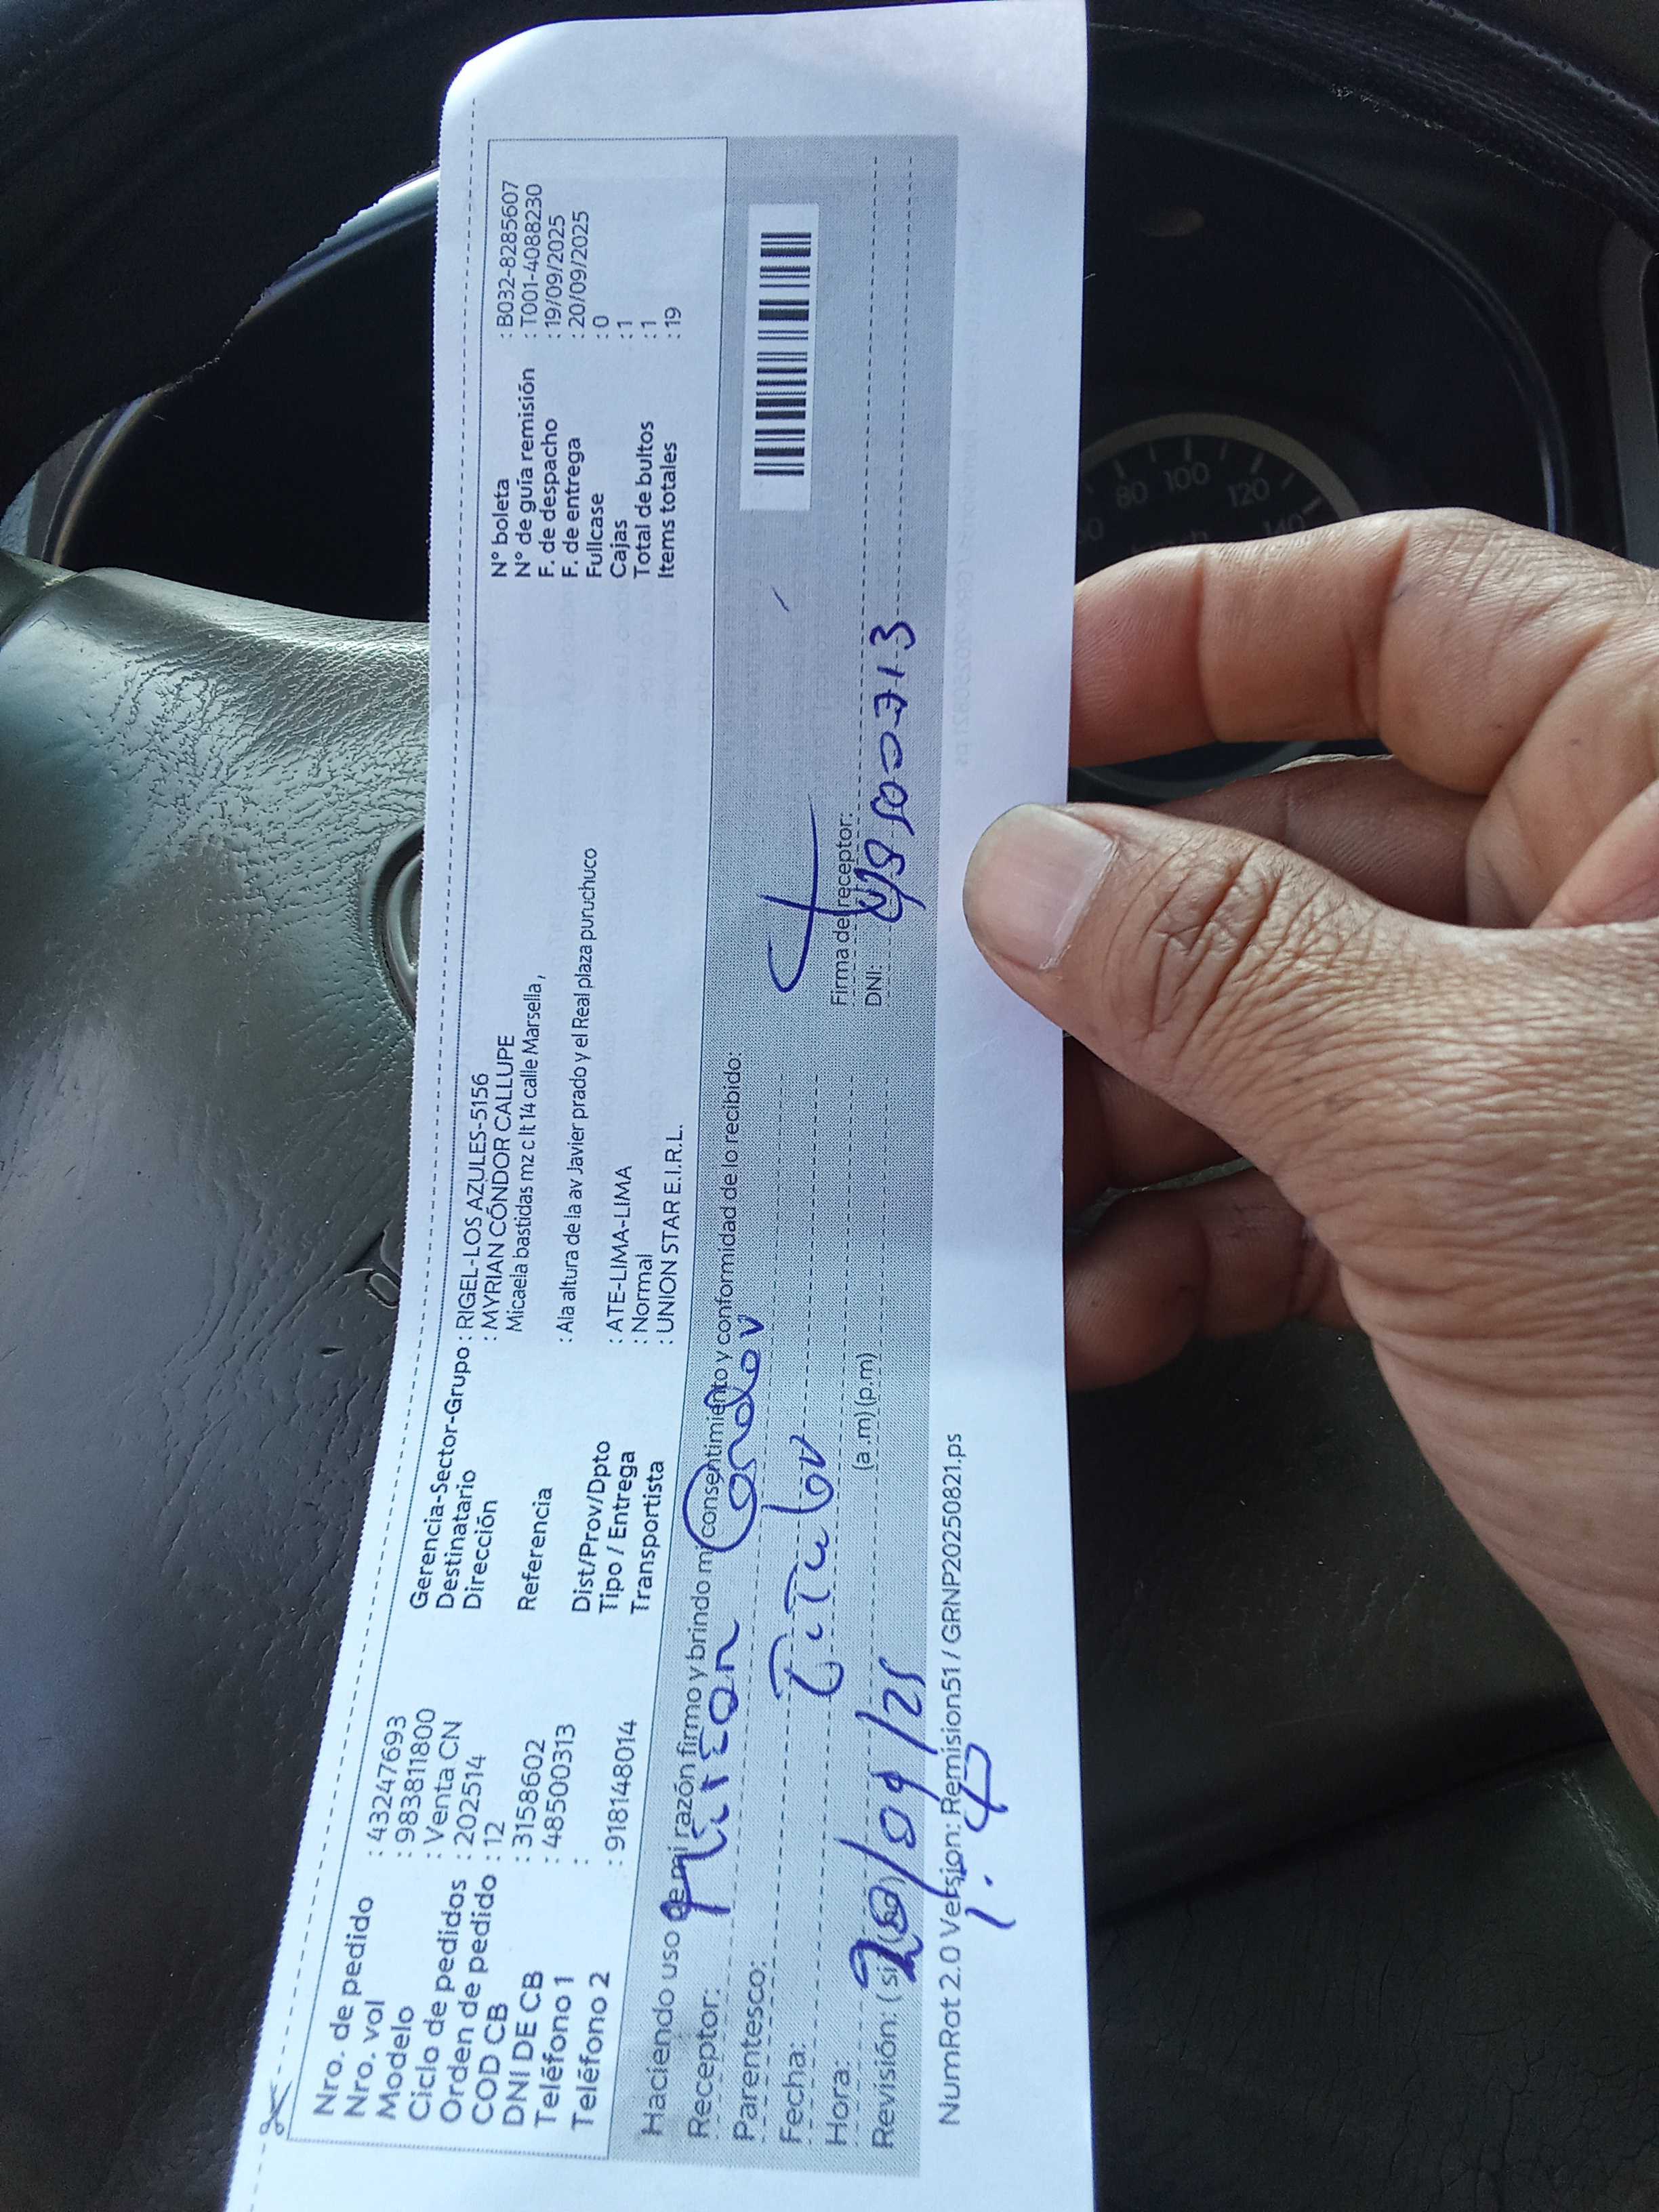 Nro. de pedido : 43247693
Nro. vol : 983811800
Modelo : Venta CN
Ciclo de pedidos : 202514
Orden de pedido : 12
COD CB : 3158602
DNI DE CB : 48500313
Teléfono 1 :
Teléfono 2 : 918148014
Gerencia-Sector-Grupo : RIGEL-LOS AZULES-5156
Destinatario : MYRIAN CÓNDOR CALLUPE
Dirección Micaela bastidas mz c lt 14 calle Marsella ,
Referencia : Ala altura de la av Javier prado y el Real plaza puruchuco
Dist/Prov/Dpto : ATE-LIMA-LIMA
Tipo / Entrega : Normal
Transportista : UNION STAR E.I.R.L.
N° boleta : B032-8285607
N° de guía remisión : T001-4088230
F. de despacho : 19/09/2025
F. de entrega : 20/09/2025
Fullcase : 0
Cajas : 1
Total de bultos : 1
Items totales : 19
Haciendo uso de mi razón firmo y brindo mi consentimiento y conformidad de lo recibido:
Receptor: Condor
Parentesco: Titular
Fecha:
Hora: (a.m) (p.m)
Revisión: ( si 20/09/25
Firma del receptor:
DNI:
NumRot 2.0 Version: Remision51 / GRNP20250821.ps
80 100 120 140